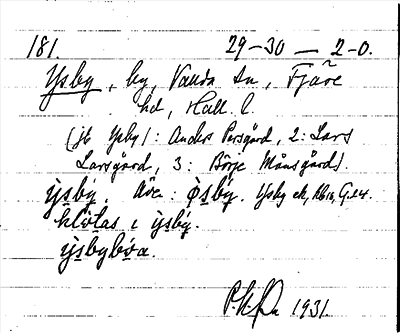 181. 29-30 — 2-0.
Ysby, by, Vanda sn, Fjäre
hd, Hall. l.
(jb Ysby 1: Anders Persgård, 2: Lars
Larsgård, 3: Börje Månsgård).
ẏsbẏ. Även: ø̀sbẏ. Ysby ek,
kløtas ı ẏsbẏ.
ẏsbybøa.
1931.